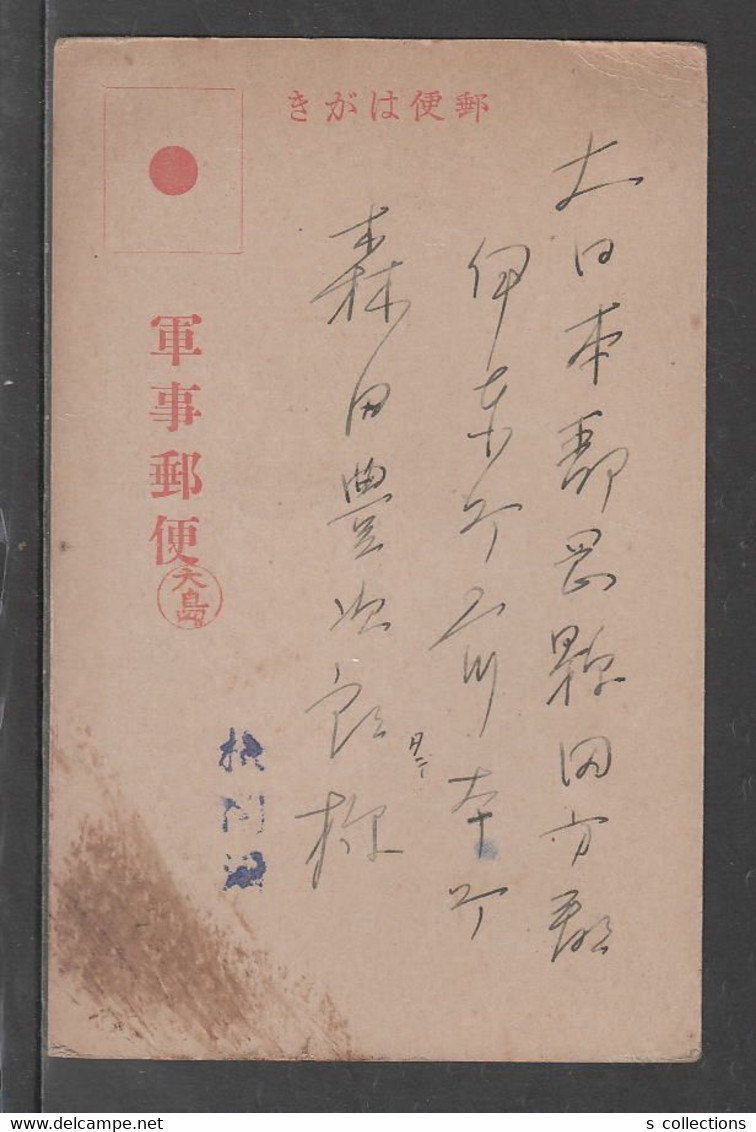 郵便はがき
大日本静岡縣田方郡
伊東町
森田豊次郎様
軍事郵便
大島
検閲済
s collections